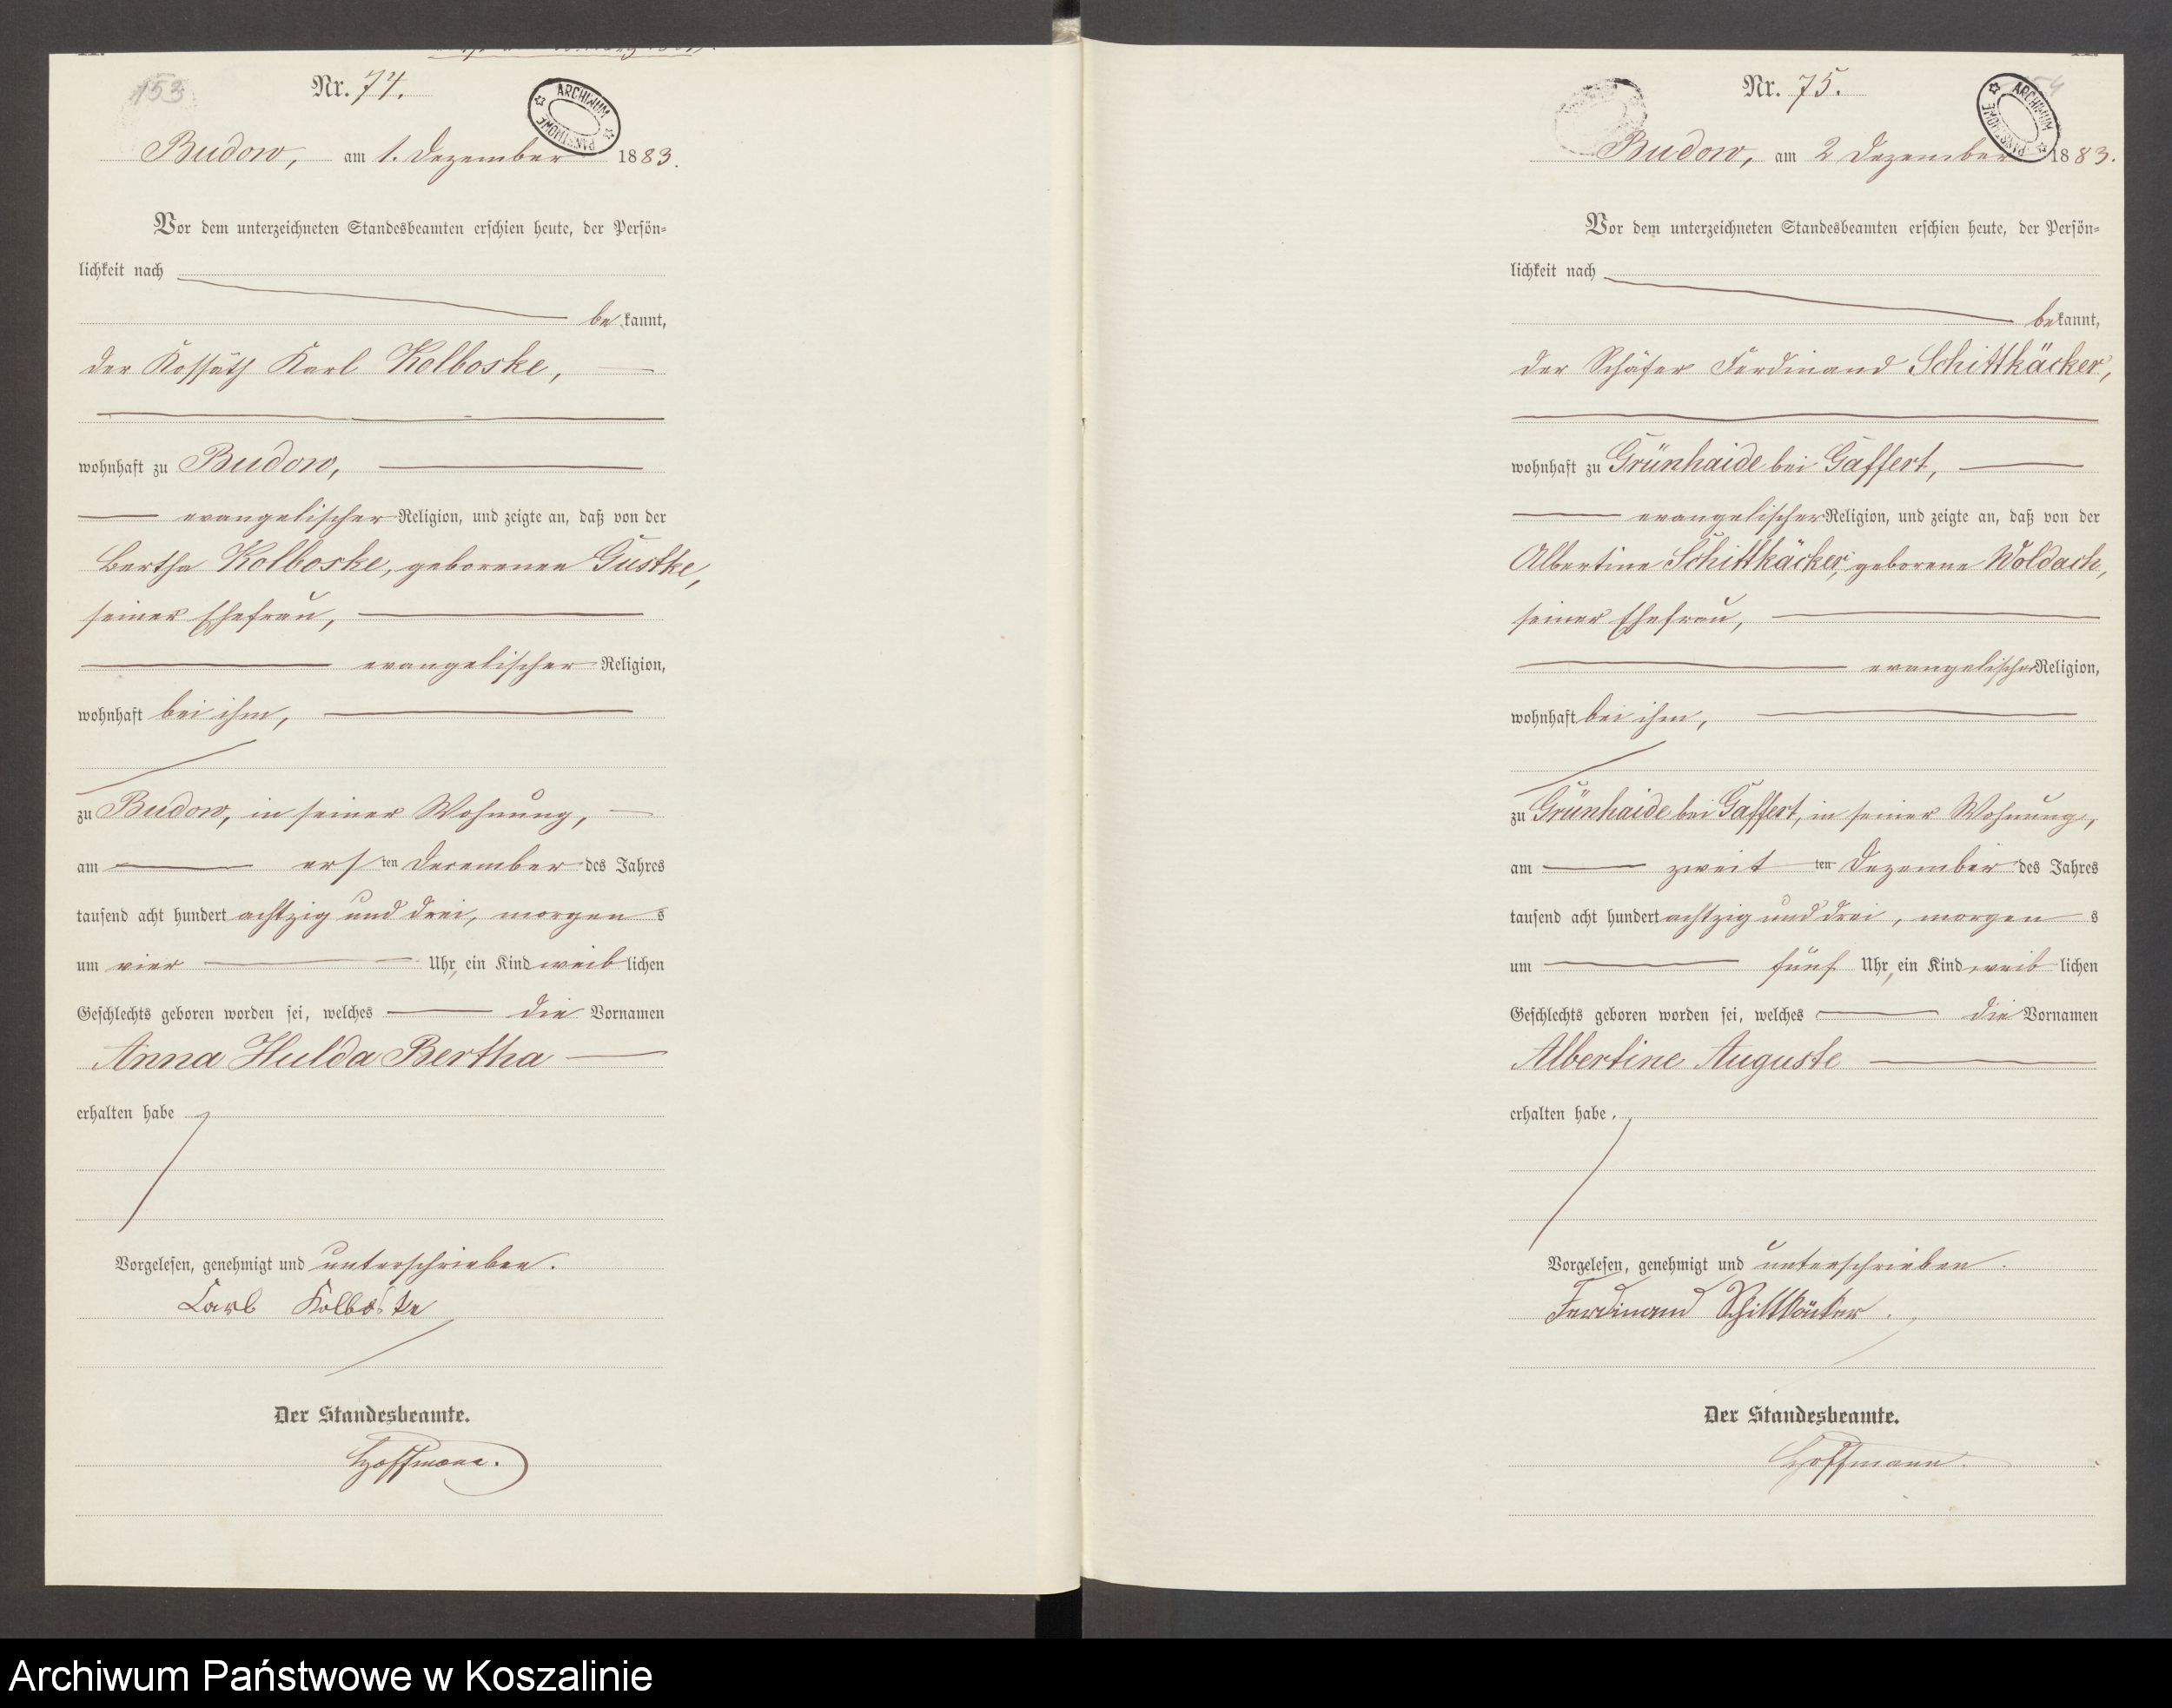 153
Nr. 74.
ARCHIWUM PAŃSTWOWE
Budow, am 1. Dezember 1883.
Vor dem unterzeichneten Standesbeamten erschien heute, der Persön-
lichkeit nach
bekannt,
der Kossäth Karl Kolboske,
wohnhaft zu Budow,
evangelischer Religion, und zeigte an, daß von der
Bertha Kolboske, geborenen Gustke,
seiner Ehefrau,
evangelischer Religion,
wohnhaft bei ihm,
zu Budow, in seiner Wohnung,
am ersten December des Jahres
tausend acht hundert achtzig und drei, morgens
um vier Uhr, ein Kind weiblichen
Geschlechts geboren worden sei, welches die Vornamen
Anna Hulda Bertha
erhalten habe
Vorgelesen, genehmigt und unterschrieben.
Carl Kolboske
Der Standesbeamte.
Hoffmann.
Nr. 75.
ARCHIWUM PAŃSTWOWE
Budow, am 2 Dezember 1883.
Vor dem unterzeichneten Standesbeamten erschien heute, der Persön-
lichkeit nach
bekannt,
der Schäfer Ferdinand Schittkäcker,
wohnhaft zu Grünhaide bei Gaffert,
evangelischer Religion, und zeigte an, daß von der
Albertine Schittkäcker, geborene Woldach,
seiner Ehefrau,
evangelischer Religion,
wohnhaft bei ihm,
zu Grünhaide bei Gaffert, in seiner Wohnung,
am zweitten Dezember des Jahres
tausend acht hundert achtzig und drei, morgens
um fünf Uhr, ein Kind weiblichen
Geschlechts geboren worden sei, welches die Vornamen
Albertine Auguste
erhalten habe.
Vorgelesen, genehmigt und unterschrieben.
Ferdinand Schittkäcker.
Der Standesbeamte.
Hoffmann.
Archiwum Państwowe w Koszalinie